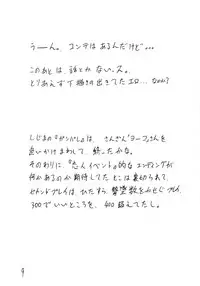 うーん。コンテはあるんだけど…
このあとは、話とかないス。
とりあえず下描き出きてたエロ…なの?
しじまの『ガンバル』は、さんざん『ヨーコ』さんを
追いかけまわして、終ったかな。
そのわりに『恋人イベント』的なエンディングが
何かあるのか期待してたとこは裏切られて、
セカンドプレイは、ひたすら、撃墜数をかせぐプレイ
300でいいところを、400超えてたし。
9